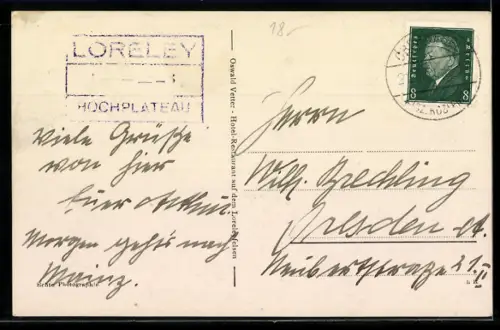 18.-
LORELEY
HOCHPLATEAU
Viele Grüße
von hier
Euer
Morgen geht's nach
Mainz.
Echte Photographie
Oswald Vetter - Hotel-Restaurant auf dem Loreleyfelsen
Deutsches Reich
8 8
Herrn
Wilh. Brechling
Dresden A.
Neubertstraße 21 II